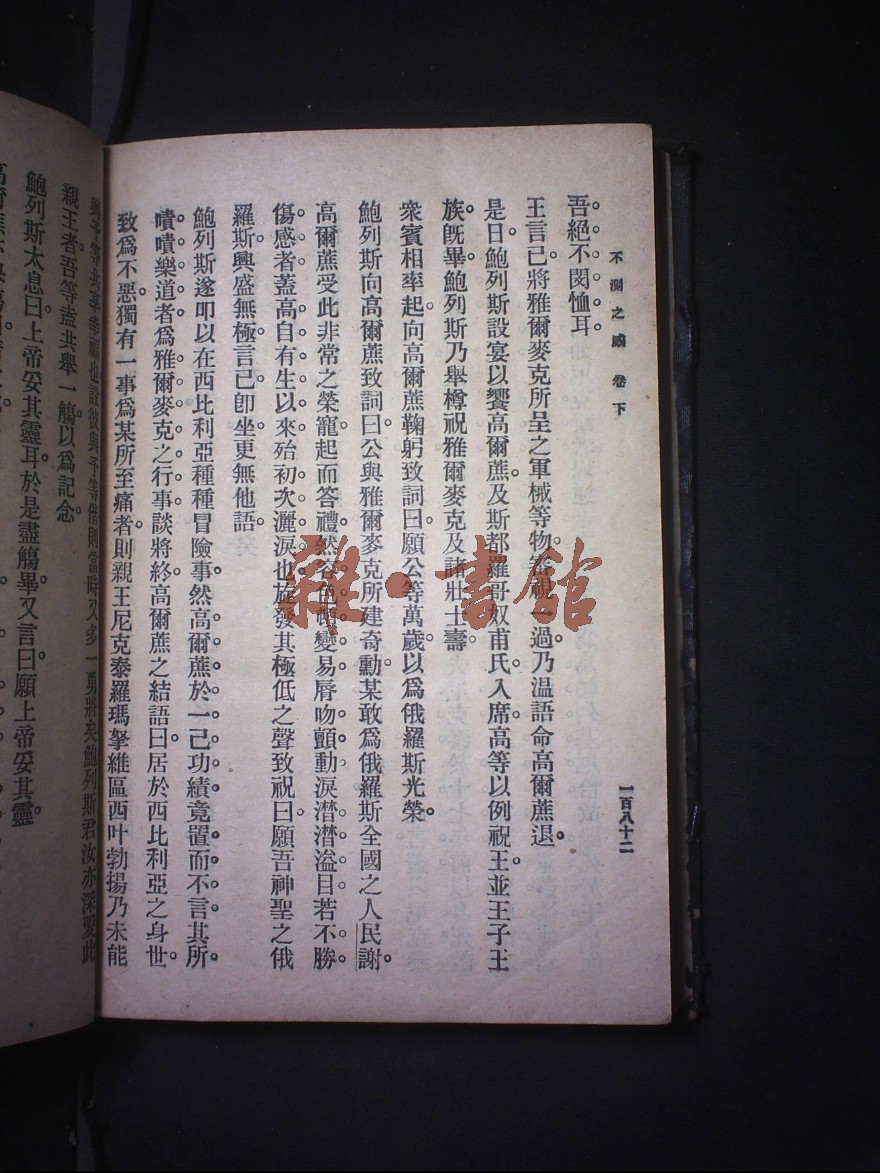 不測之威 卷下
一百八十二
吾絕不閔恤耳。
王言已。將雅爾麥克所呈之軍械等物審視一過。乃溫語命高爾蕉退。
是日。鮑列斯設宴以饗高爾蕉。及斯都羅哥奴甫氏。入席。高等以例祝王並王子王
族。既畢。鮑列斯乃舉樽祝雅爾麥克及諸壯士壽。
衆賓相率起。向高爾蕉鞠躬致詞曰。願公等萬歲。以爲俄羅斯光榮。
鮑列斯向高爾蕉致詞曰。公與雅爾麥克所建奇勳。某敢爲俄羅斯全國之人民謝。
高爾蕉受此非常之榮寵。起而答禮。然容色頓變易。唇吻顫動。淚潸潸溢目。若不勝
傷感者。蓋高自有生以來。殆初次灑淚也。旋發其極低之聲致祝曰。願吾神聖之俄
羅斯興盛無極。言已。卽坐。更無他語。
鮑列斯遂叩以在西比利亞種種冒險事。然高爾蕉於一己功績。竟置而不言。其所
嘖嘖樂道者。爲雅爾麥克之行事。談將終。高爾蕉之結語曰。居於西比利亞之身世。
致爲不惡。獨有一事爲某所至痛者。則親王尼克泰羅瑪拏維區西叶勃揚乃未能
與予等共享幸福也。設彼與予等偕。則當時又多一勇將矣。鮑列斯君。汝亦深愛此
親王者。吾等盍共舉一觴以爲記念。
鮑列斯太息曰。上帝妥其靈耳。於是盡觴畢。又言曰。願上帝妥其靈。
雜·書館